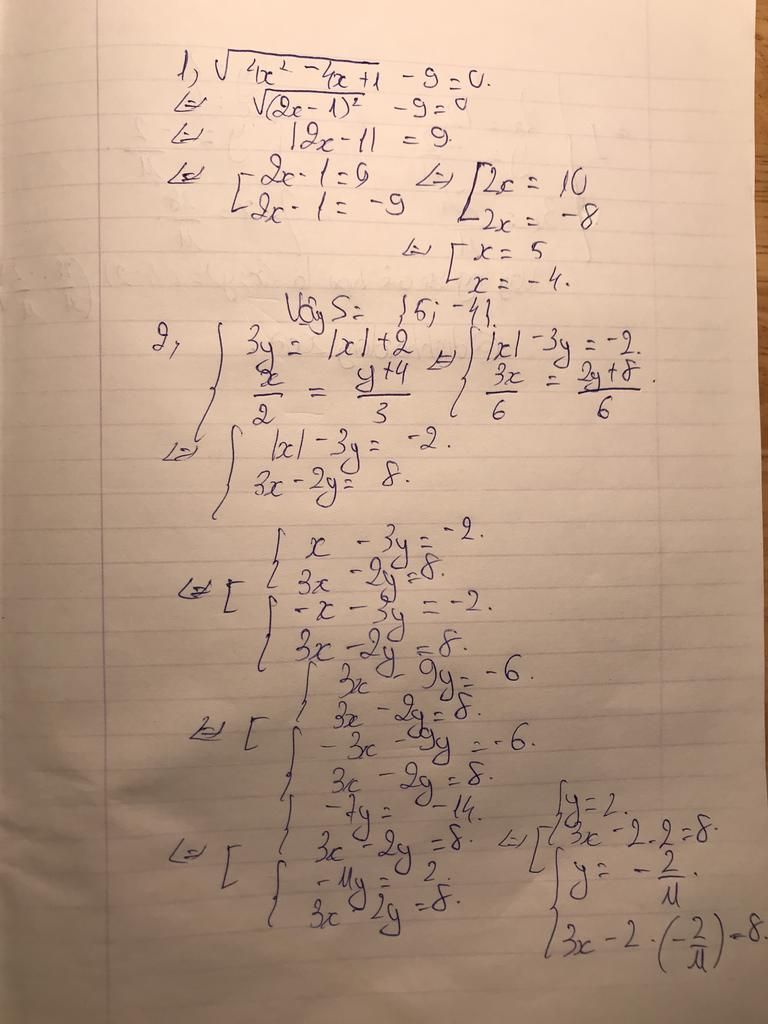 1, √(4x² - 4x + 1) - 9 = 0.
⇔ √(2x - 1)² - 9 = 0
⇔ |2x - 1| = 9.
⇔ [ 2x - 1 = 9 ⇔ [ 2x = 10
2x - 1 = -9 2x = -8
⇔ [ x = 5
x = -4.
Vậy S = {5; -4}.
2, { 3y = |x| + 2 ⇔ { |x| - 3y = -2.
x/2 = (y+4)/3 3x/6 = (2y+8)/6.
⇔ { |x| - 3y = -2.
3x - 2y = 8.
{ x - 3y = -2.
3x - 2y = 8.
⇔ [
{ -x - 3y = -2.
3x - 2y = 8.
{ 3x - 9y = -6.
3x - 2y = 8.
⇔ [
{ -3x - 9y = -6.
3x - 2y = 8.
{ -7y = -14. { y = 2.
3x - 2y = 8. ⇔ [ 3x - 2.2 = 8.
⇔ [
{ -11y = 2. { y = -2/11.
3x - 2y = 8. 3x - 2.(-2/11) = 8.